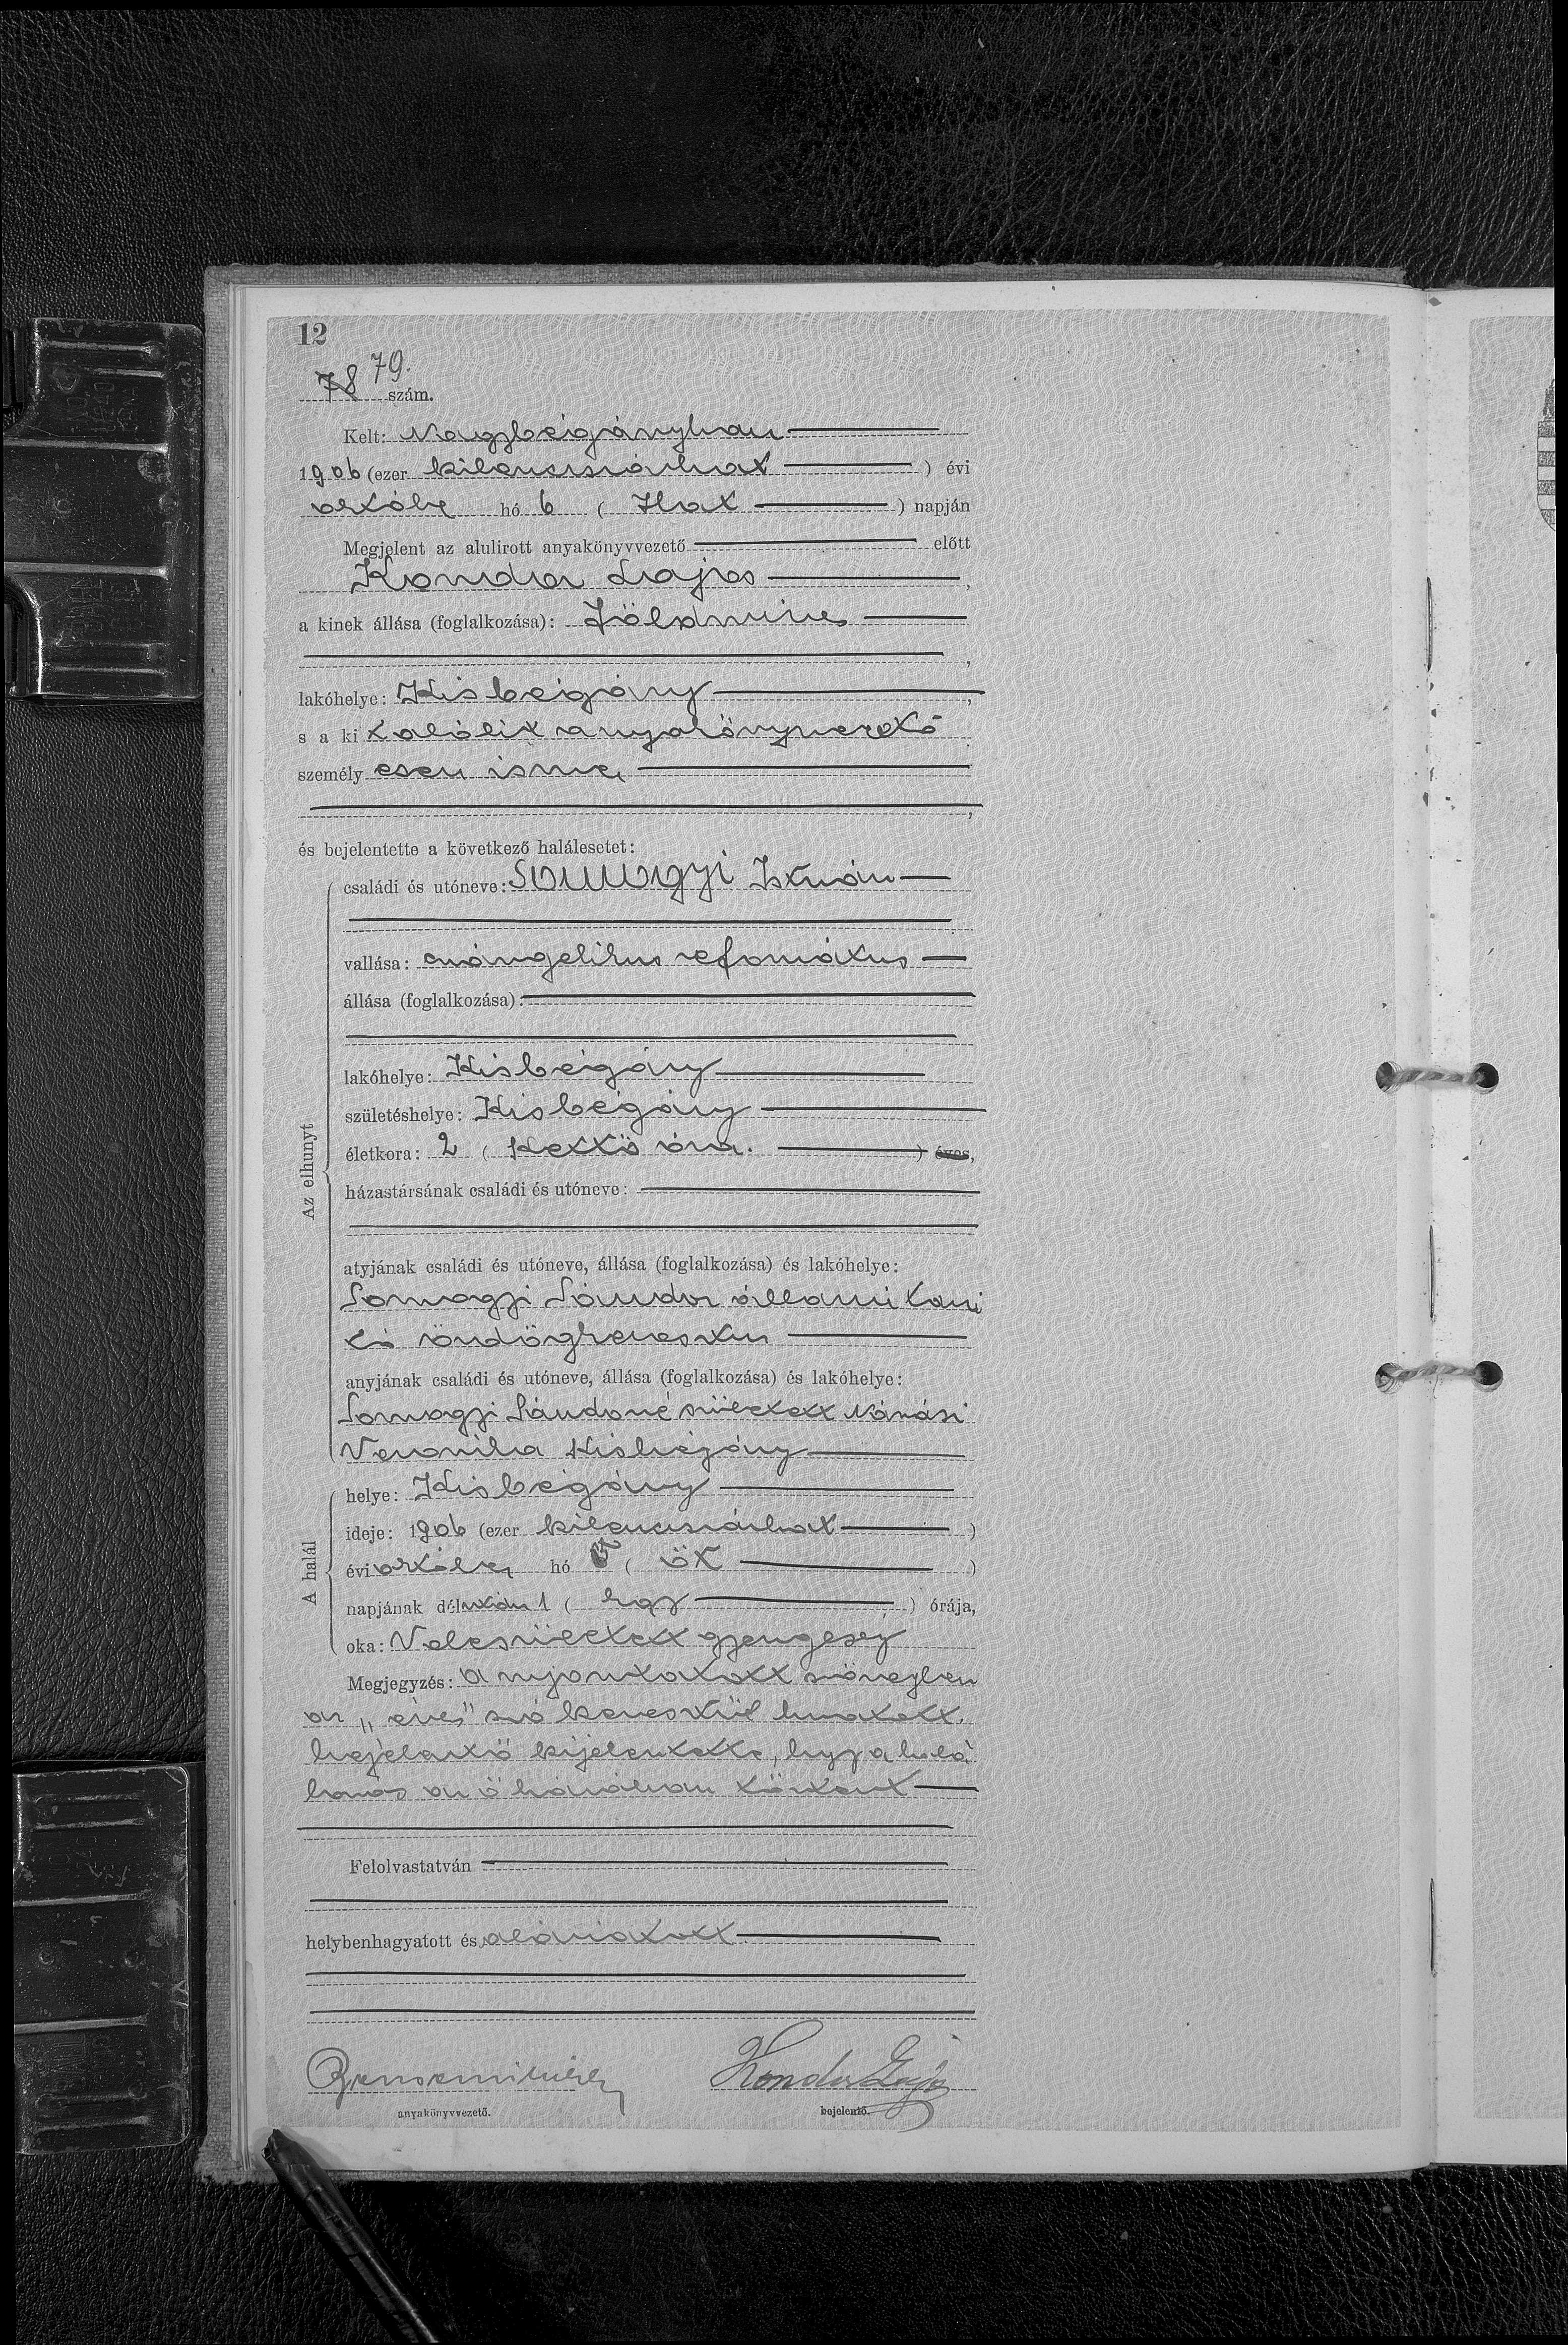 12
78 79.
szám.
Kelt: Nagybégányban
1906 (ezer kilencszázhat ) évi
október hó 6 ( Hat ) napján
Megjelent az alulirott anyakönyvvezető előtt
Konda Lajos ,
a kinek állása (foglalkozása): Földmíves
,
lakóhelye: Kisbégány ,
s a ki alólirt anyakönyvvezető
személyesen ismer
,
és bejelentette a következő halálesetet:
Az elhunyt
családi és utóneve: Somogyi István
vallása: evángelikus református
állása (foglalkozása):
lakóhelye: Kisbégány
születéshelye: Kisbégány
életkora: 2 ( Kettő óra. ) éves,
házastársának családi és utóneve:
atyjának családi és utóneve, állása (foglalkozása) és lakóhelye:
Somogyi Sándor állami
anyjának családi és utóneve, állása (foglalkozása) és lakóhelye:
Somogyi Sándorné született Nánási
Veronika Kisbégány
A halál
helye: Kisbégány
ideje: 1906 (ezer kilencszázhat )
évi október hó 5 ( öt )
napjának délután 1 ( Egy ) órája,
oka: Veleszületett gyengeség
Megjegyzés: A nyomtatott szövegben
az „éves" szó keresztül huzatott.
bejelentő kijelentette, hogy a halá
lozás az ő házában történt
Felolvastatván
helybenhagyatott és aláiratott
Konda Lajos
anyakönyvvezető. bejelentő.